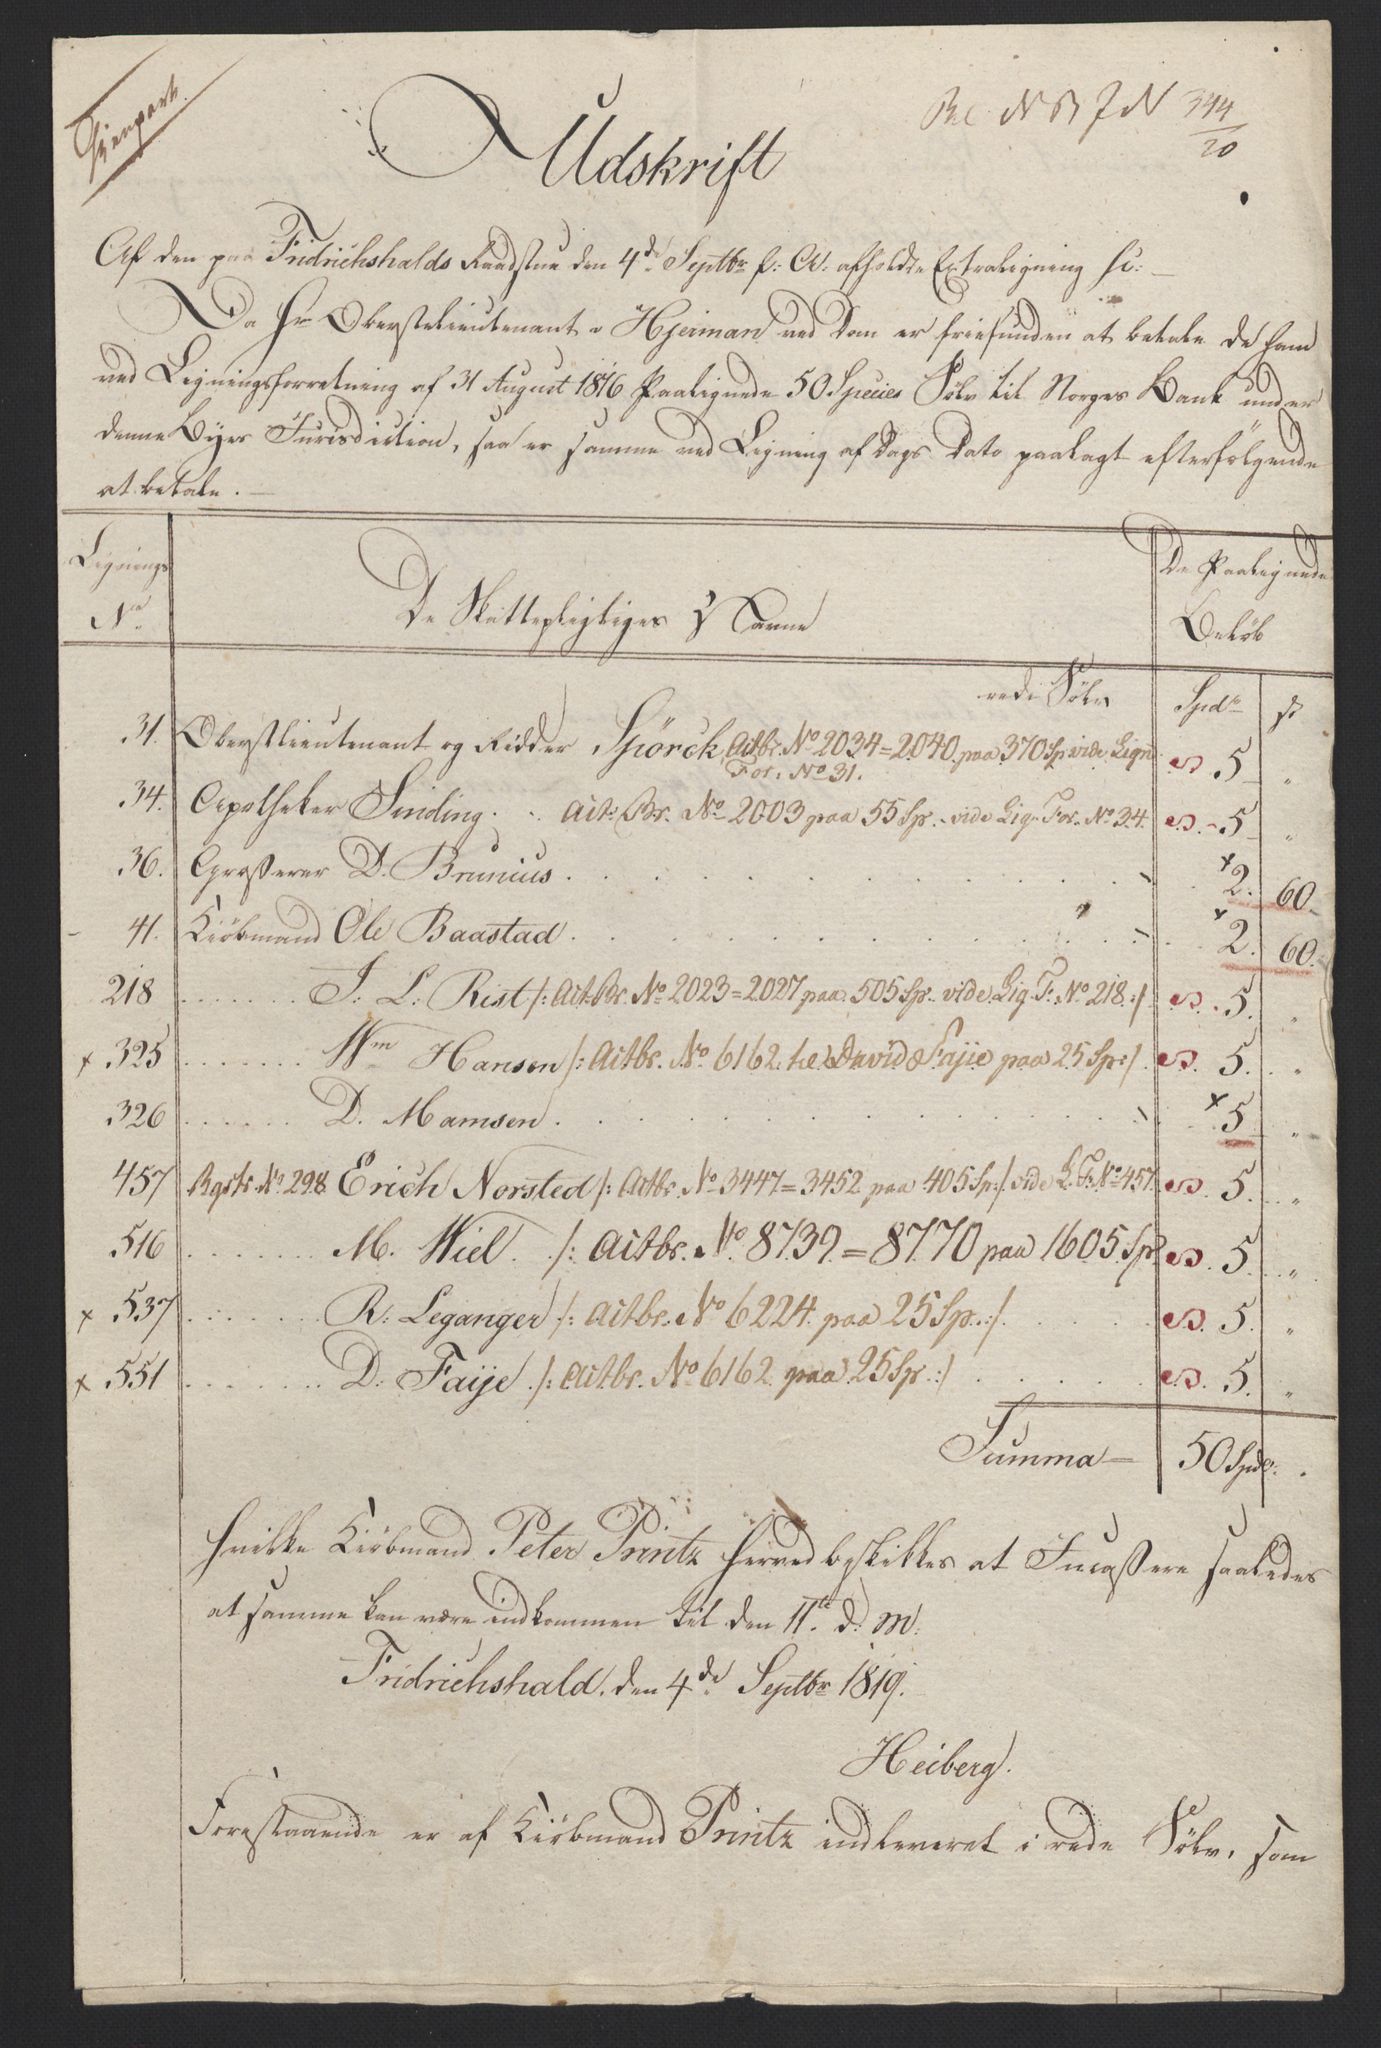 Gienpart.
N B J N 344/20
Udskrift
Af den paa Fridrichshalds Raadstue den 4de Septbr f: A: afholdte Extraligning
Da Hr Oberstelieutenant v Hjerman ved Dom er friefunden at betale de ham
ved Ligningsforretning af 31 August 1816 Paalignede 50 Species Sølv til Norges Bank under
denne Byes Jurisdiction, saa er samme ved Ligning af Dags Dato paalagt efterfølgende
at betale. —
Lignings No
De Skattepligtiges Navne
De Paalignede Beløb
rede Sølv Spdr ß
31. Oberstlieutenant og Ridder Spörck Actbr. No 2034=2040. paa 370 Sp vide Lign. S 5 "
For. No 31.
34. Apotheker Sinding . . Act: Br. No 2003 paa 55 Sp. vide Lig. For. No 34. S. 5 "
36. Grosserer D. Brunius . . . x 2. 60.
- 41. Kiøbmand Ole Baastad . . . x 2. 60.
218 ...... J. L. Rist /: Act.Br. No 2023=2027 paa 505 Sp. vide Lig. F. No 218. :/ S. 5. "
x 325 ...... Wm Hansen /: Actbr. No 6162. David Fajie paa 25 Sp :/ S. 5. "
326 ...... D. Mamsen . . . x 5 "
457 Rgstr No 298 Erich Norsted /: Actbr. No 3447=3452 paa 405 Sp :/ vide L. F. No 457. S. 5. "
516 ...... M. Wiel. /: Actbr. No. 8739.=8770 paa 1605 Sp S. 5. "
x 537 ...... R: Leganger /: Actbr. No 6224. paa 25 Sp. :/ S. 5. "
x 551 ...... D. Faije. /: Actbr. No 6162. paa 25 Sp. :/ S. 5. "
Summa = 50 Spdr.
hvilke Kiøbmand Peter Printz herved beskikkes at Incassere saaledes
at samme kan være indkommen til den 11te d. M.
Fridrichshald. den 4de Septbr 1819.
Heiberg.
Forestaaende er af Kiøbmand Printz indleveret i rede Sølv, som